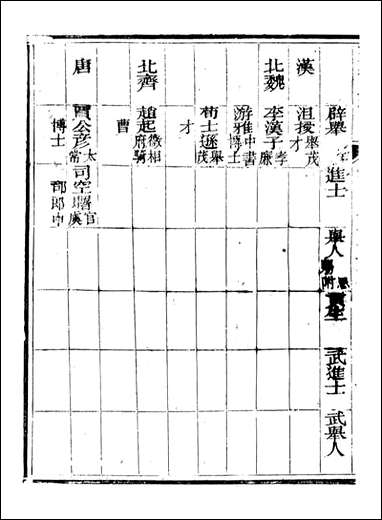 辟舉 進士 舉人 恩附 貢生 武進士 武舉人
漢
沮授舉茂
才
北魏
李漢子孝廉
游雅中書博士
荀士遜舉茂
才
北齊
趙起徵相府騎
曹
唐
賈公彥太常
博士
司空曙官虞
部郎中